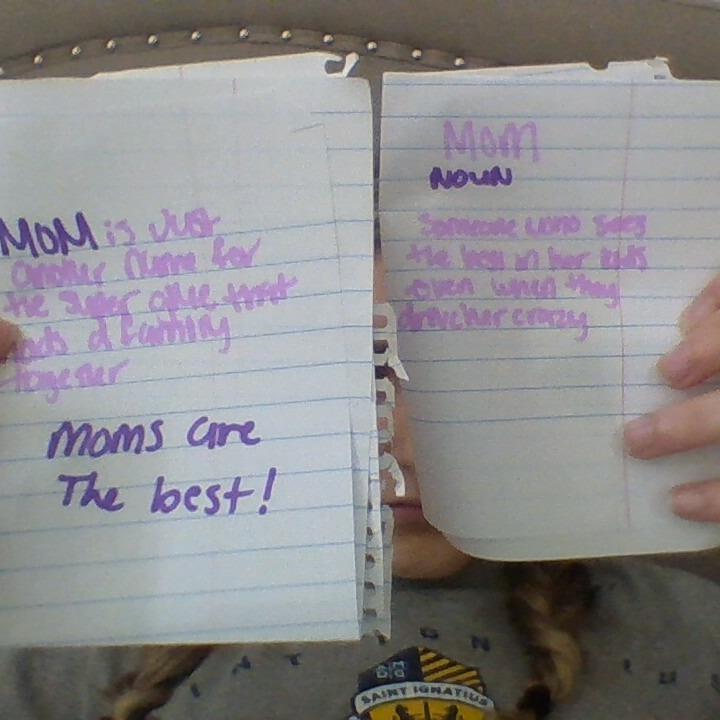 MOM is Just
another name for
the super glue that
holds a family
together
Moms are
The best!
Mom
NOUN
Someone who sees
the best in her kids
even when they
drive her crazy
SAINT IGNATIUS